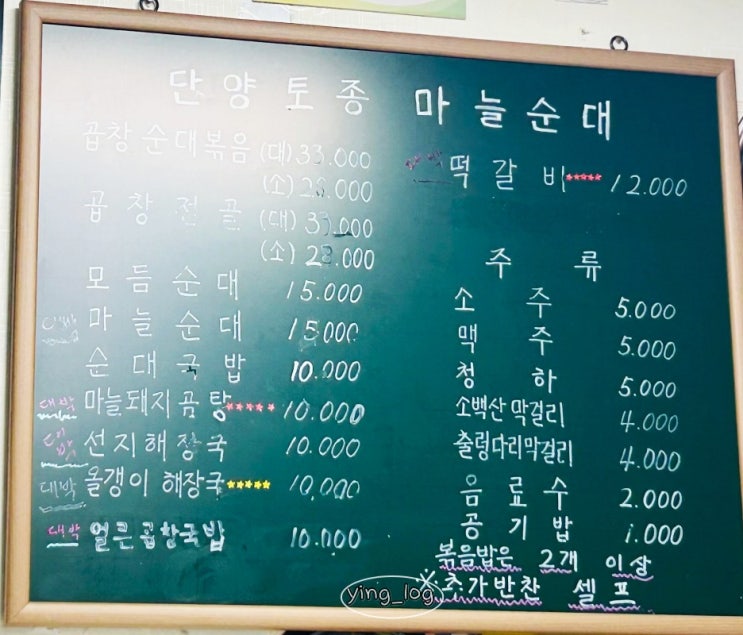 단양토종 마늘순대
곱창순대볶음 (대) 33.000
(소) 28.000
곱창전골 (대) 33.000
(소) 28.000
모듬순대 15.000
마늘순대 15.000
순대국밥 10.000
대박 마늘돼지곰탕★★★★★ 10.000
대박 선지해장국 10.000
대박 올갱이 해장국★★★★★ 10.000
대박 얼큰곱창국밥 10.000
떡갈비★★★★★ 12.000
주류
소주 5.000
맥주 5.000
청하 5.000
소백산막걸리 4.000
출렁다리막걸리 4.000
음료수 2.000
공기밥 1.000
볶음밥은 2개 이상
※추가반찬 셀프
ying_log